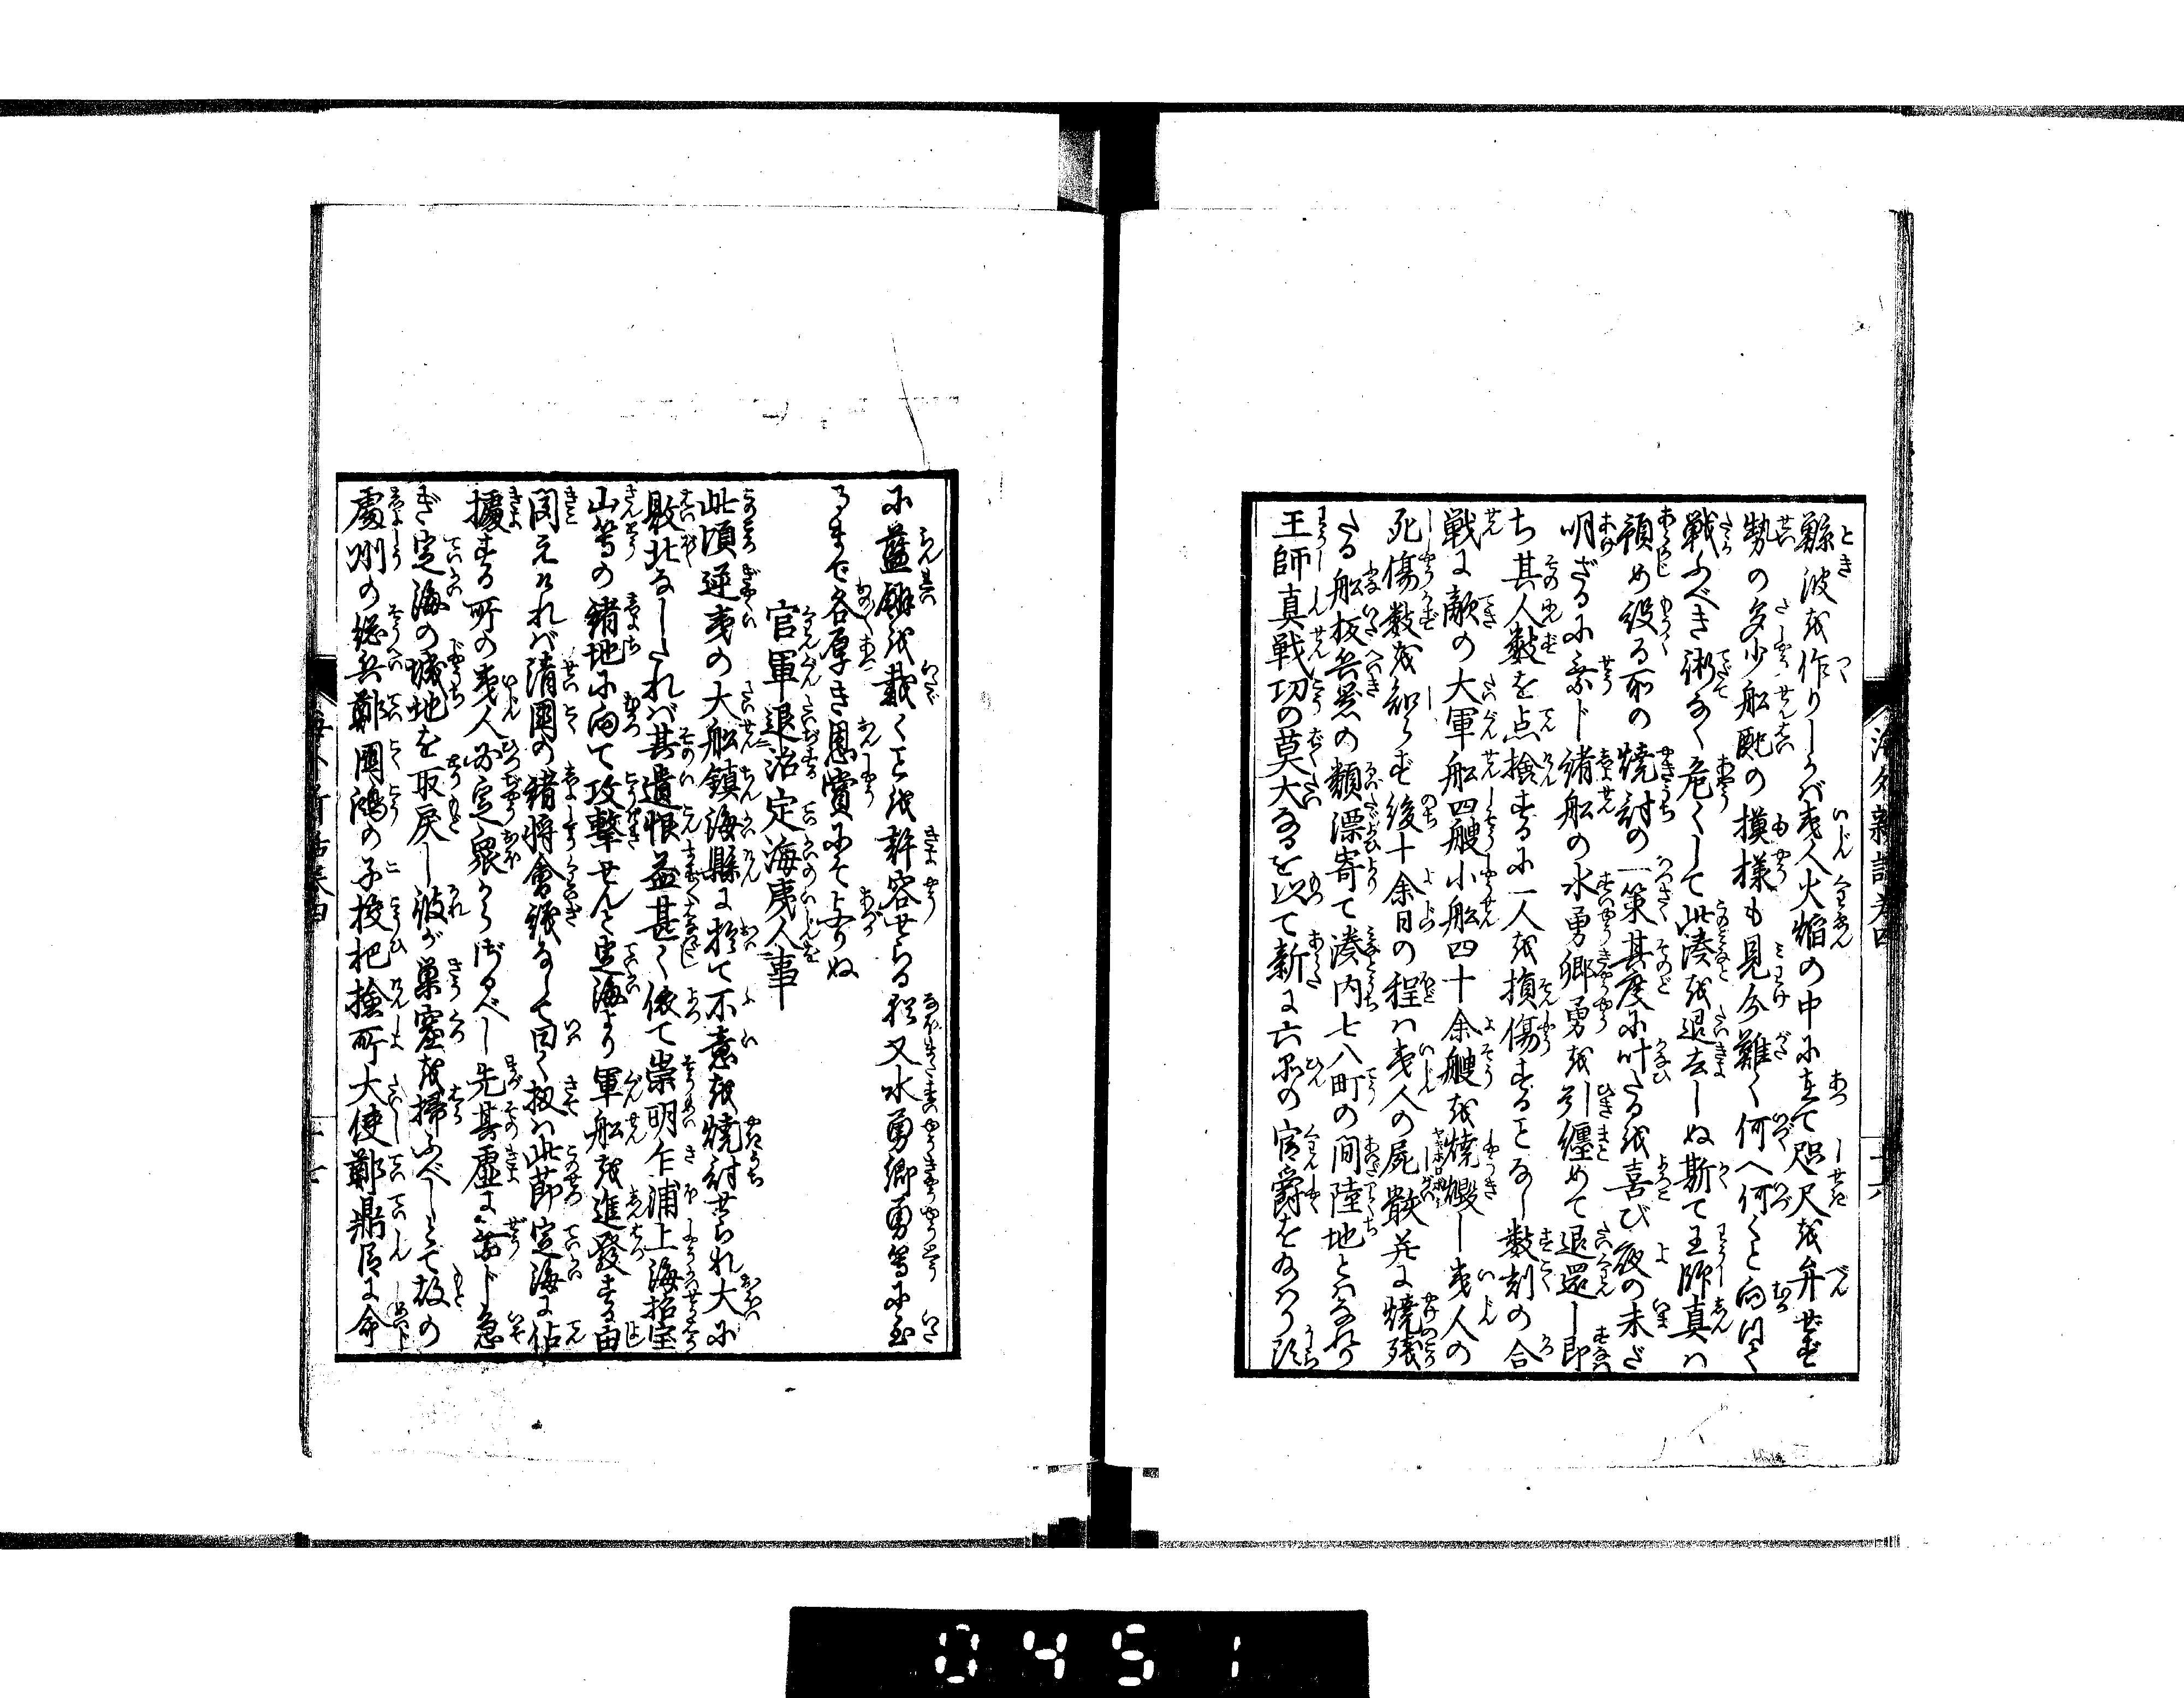 鯨波を作りしかバ夷人火焔の中に在て咫尺を弁せず
勢の多少船配の摸様も見分難く何へ何くと向川て
戦ふべき術なく危くして此湊を退去しぬ斯て王師真ハ
領め役る所の焼討の一策其度に叶たるを喜び夜の未ざ
明ざるに乗ド諸船の水勇郷勇を引纏めて退還し即
ち其人数を点撿するに一人を損傷することなし数刻の合
戦に敵の大軍船四艘小船四十余艘を焼燬し夷人の
死傷数を知らず後十余日の程ハ夷人の屍骸并に焼残
たる船板兵器の類漂寄て湊内七八町の間陸地とハなれり
王師真戦功の莫大なるを以て新に六品の官爵を為ハり頂
海外新話巻四
十六
に藍翎を戴くことを許容せらる猶又水勇郷勇等に至
るまで各厚き恩賞にそ与りぬ
官軍退治定海夷人事
此頃逆夷の大船鎮海縣に於て不意を焼討せられ大に
敗北なしたれバ其遺恨益甚く依て崇明乍浦上海招宝
山等の諸地に向て攻撃せんと定海より軍船を進發する由
聞えけれバ清國の諸將會議なして曰く扨ハ此節定海に佔
據する所の夷人必定衆からざるべし先其虚に乗ド急
ぎ定海の城地を取戻し彼が巣窟を掃ふべしとて故の
處州の総兵鄭國鴻の子挍把撿所大使鄭鼎臣に命
海外新話巻四
十七
0451